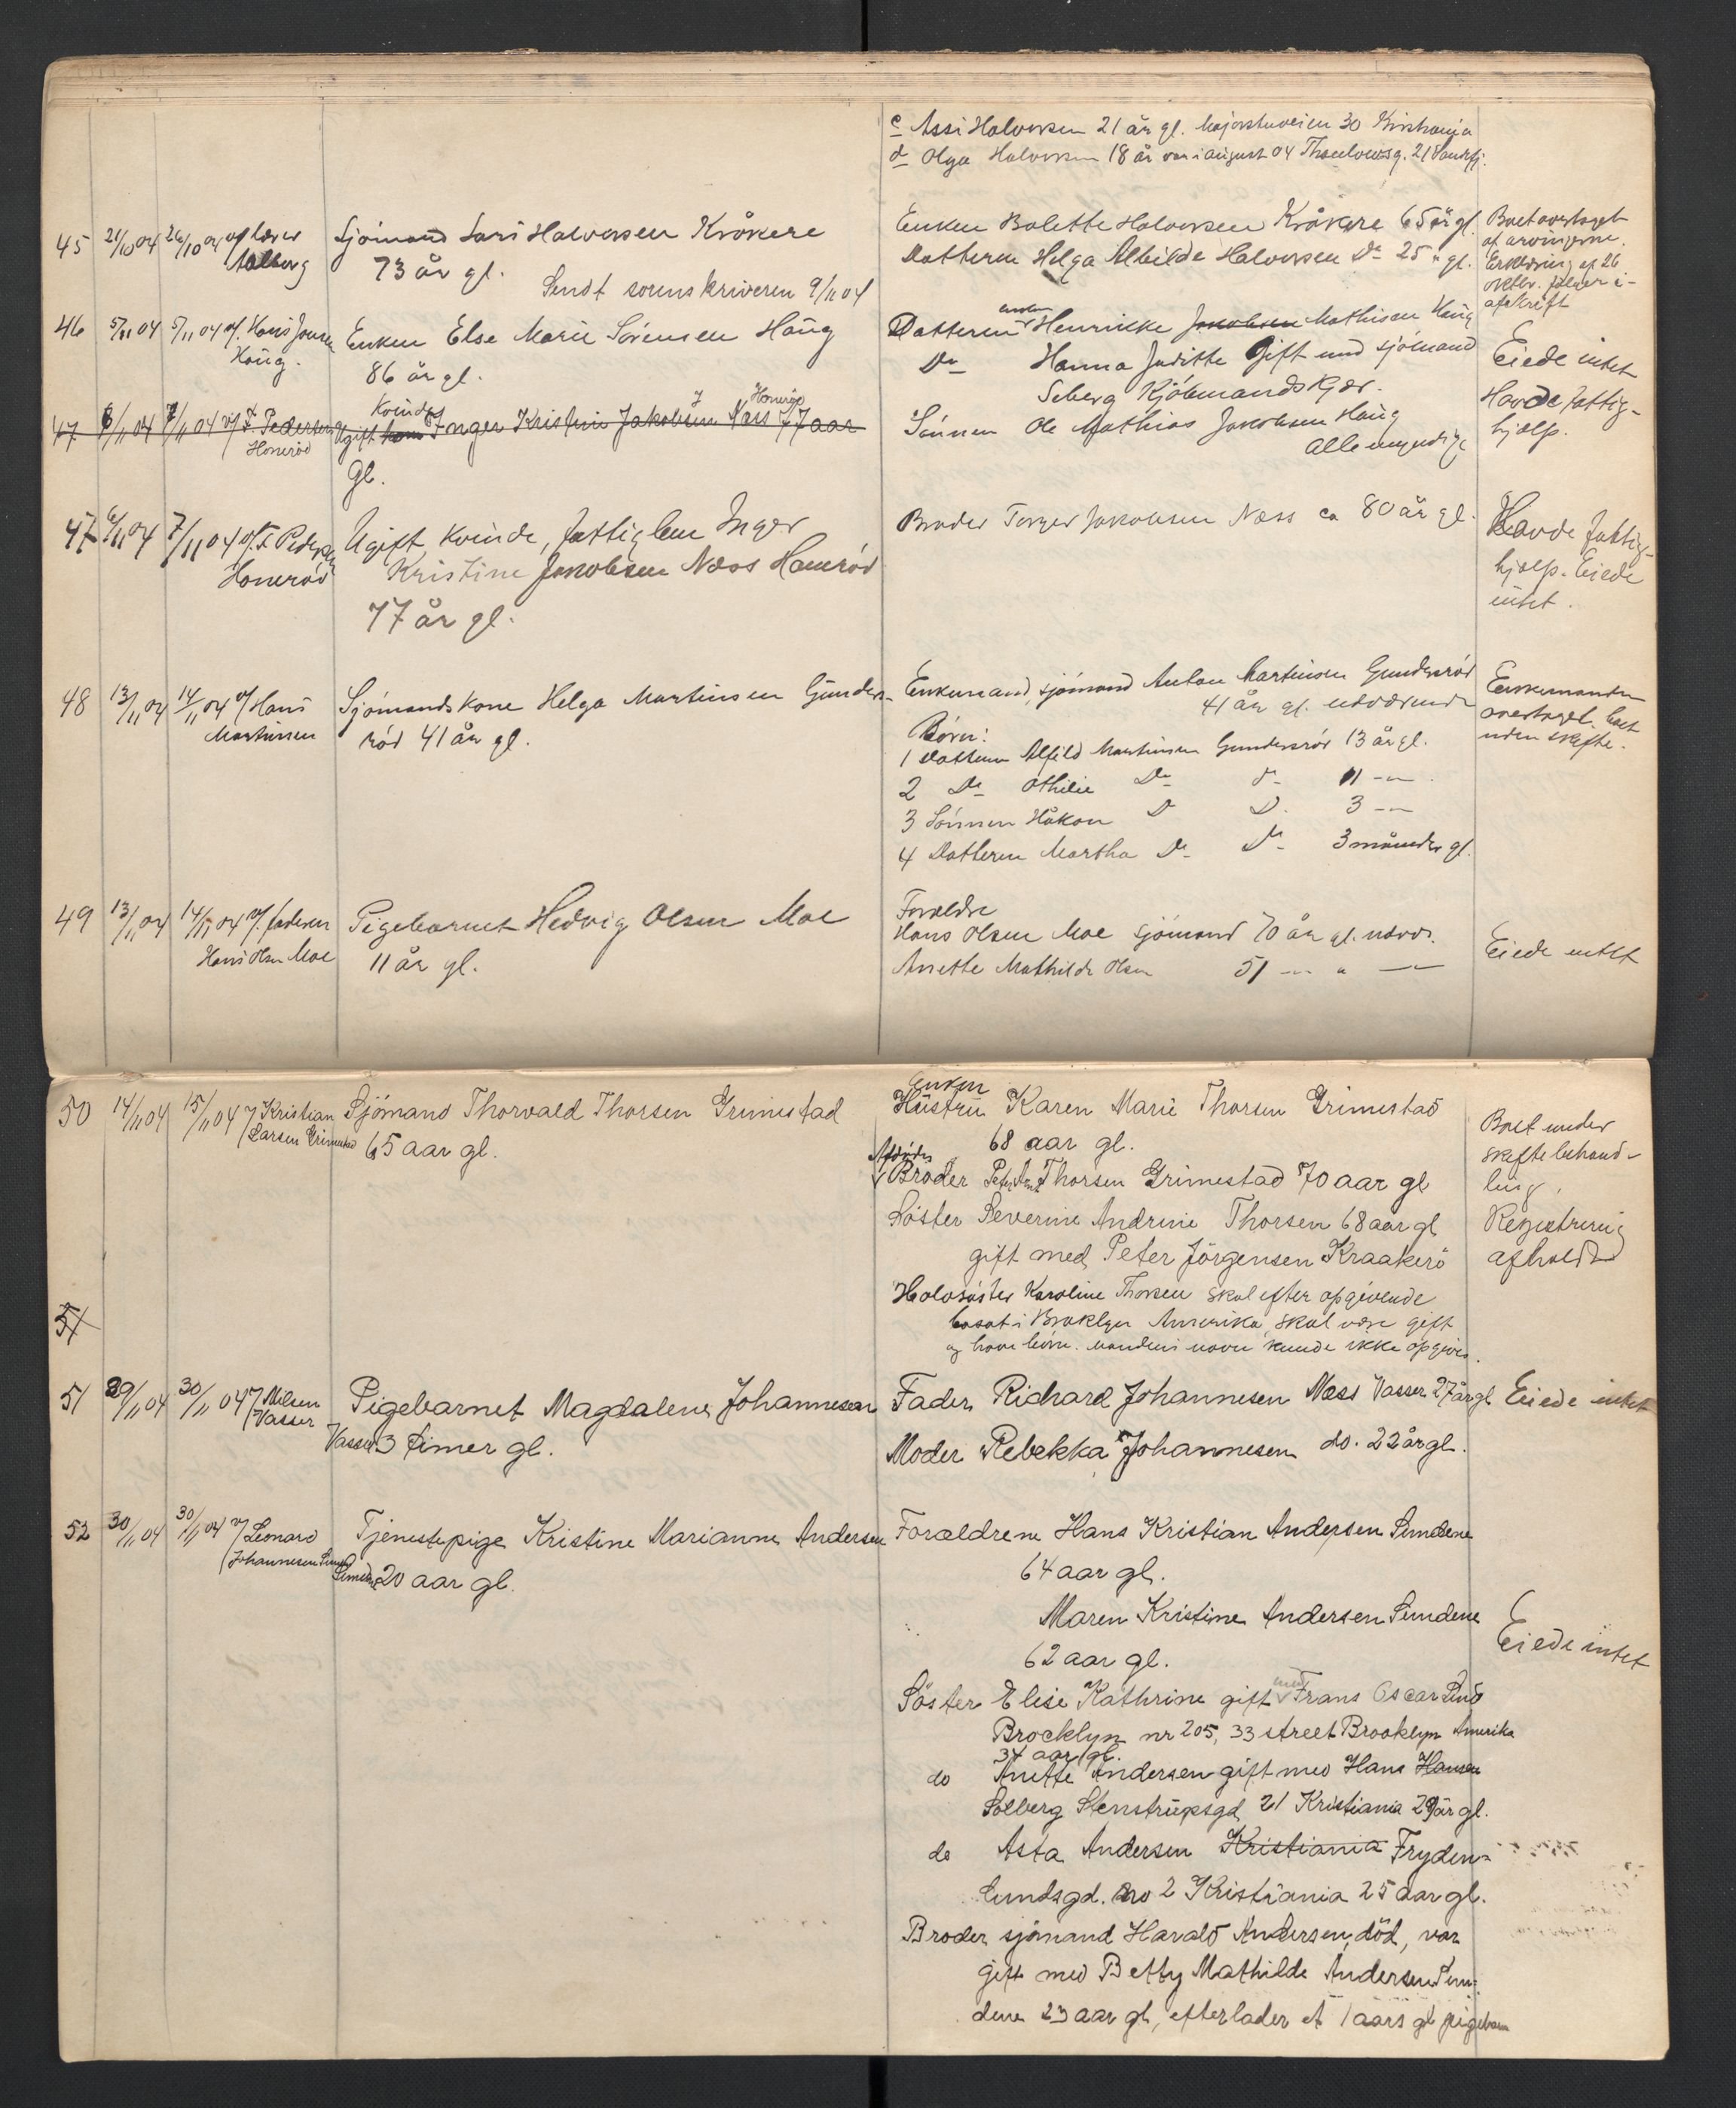 c Assi Halvorsen 21 år gl. Majorstuveien 30 Kristiania
d Olga Halvorsen 18 år var i august 04 Thaulowsg. 21 Sandefj.
45 21/10 04 26/10 04 af lærer Aalborg
Sjömand Lars Halvorsen Kråkere
73 år gl.
Sendt sorenskriveren 9/11 04
Enken Bolette Halvorsen Kråkere 65 år gl.
Datteren Helga Albilde Halvorsen Do 25 " gl.
Boet overtaget
af arvingerne.
Erklæring af 26
oktbr. følger i
afskrift
46 5/11 04 5/11 04 af Hans Jensen
Haug.
Enken Else Marie Sörensen Haug
86 år gl.
Datteren enke Henrikke Jakobsen Mathisen Haug
Do Hanna Juditte Gift med sjömand
Seberg Kjöbmandskjær.
Sönnen Ole Mathias Jakobsen Haug
alle myndige
Eiede intet
Havde fattig-
hjælp.
47 6/11 04 7/11 04 af F Pedersen
Honerød
Ugift kone Kvinde Inger Kristine Jakobsen Næss Honerød 77 aar
gl.
47 6/11 04 7/11 04 af F. Pedersen
Honerød
Ugift Kvinde, fattiglem Inger
Kristine Jakobsen Næss Honerød
77 år gl.
Broder Torger Jakobsen Næss ca 80 år gl.
Havde fattig-
hjælp. Eiede
intet.
48 13/11 04 14/11 04 af Hans
Martinsen
Sjömandskone Helga Martinsen Gunders-
röd 41 år gl.
Enkemand, sjömand Anton Martinsen Gundersröd
41 år gl. udværende
Børn:
1 Datteren Alfild Martinsen Gundersröd 13 år gl.
2 Do Othilie Do do 11 -"-
3 Sönnen Håkon D D. 3 -"-
4 Datteren Martha Do Do 3 måneder gl.
Enkemanden
overtaget boet
uden skifte.
49 13/11 04 14/11 04 af faderen
Hans Olsen Moe
Pigebarnet Hedvig Olsen Moe
11 år gl.
Forældre
Hans Olsen Moe sjömand 70 år gl. udvær.
Anette Mathilde Olsen 51 -"- " -"-
Eiede intet
50 14/11 04 15/11 04 af Kristian
Larsen Grimestad
Sjömand Thorvald Thorsen Grimestad
65 aar gl.
Enken
Hustru Karen Marie Thorsen Grimestad
68 aar gl.
Afdöde
Broder Peter Ant. Thorsen Grimestad 70 aar gl
Söster Severine Andrine Thorsen 68 aar gl
gift med Peter Jörgensen Kraakerö
Halvsöster Karoline Thorsen skal efter opgivende
bosat i Broklyn Amerika, skal være gift
og have börn. mandens navn kunde ikke opgives.
Boet under
skiftebehand-
ling.
Registrering
afholdt
51
51 29/11 04 30/11 04 af Nilsen
Vasser
Pigebarnet Magdalene Johannesen
Vasser 3 timer gl.
Fader Richard Johannesen Næss Vasser 27 år gl
Moder Rebekka Johannesen do. 22 år gl.
Eiede intet
52 30/11 04 30/11 04 af Leonard
Johannesen Sund
Tjenestepige Kristine Marianne Andersen
Sundene 20 aar gl.
Forældrene Hans Kristian Andersen Sundene
64 aar gl.
Maren Kristine Andersen Sundene
62 aar gl.
Eiede intet
Söster Elise Kathrine gift med Frans Oscar Lind
Brocklyn nr 205, 33 street Brooklyn Amerika
34 aar gl.
do Anette Andersen gift med Hans Hansen
Solberg Stenstrupsgd 21 Kristiania 29 år gl.
do Asta Andersen Kristiania Fryden-
lundsgd. No 2 Kristiania 25 aar gl.
Broder sjömand Harald Andersen, död, var
gift med Betty Mathilde Andersen Sun-
dene 23 aar gl, efterlader et 1 aars gl pigebarn